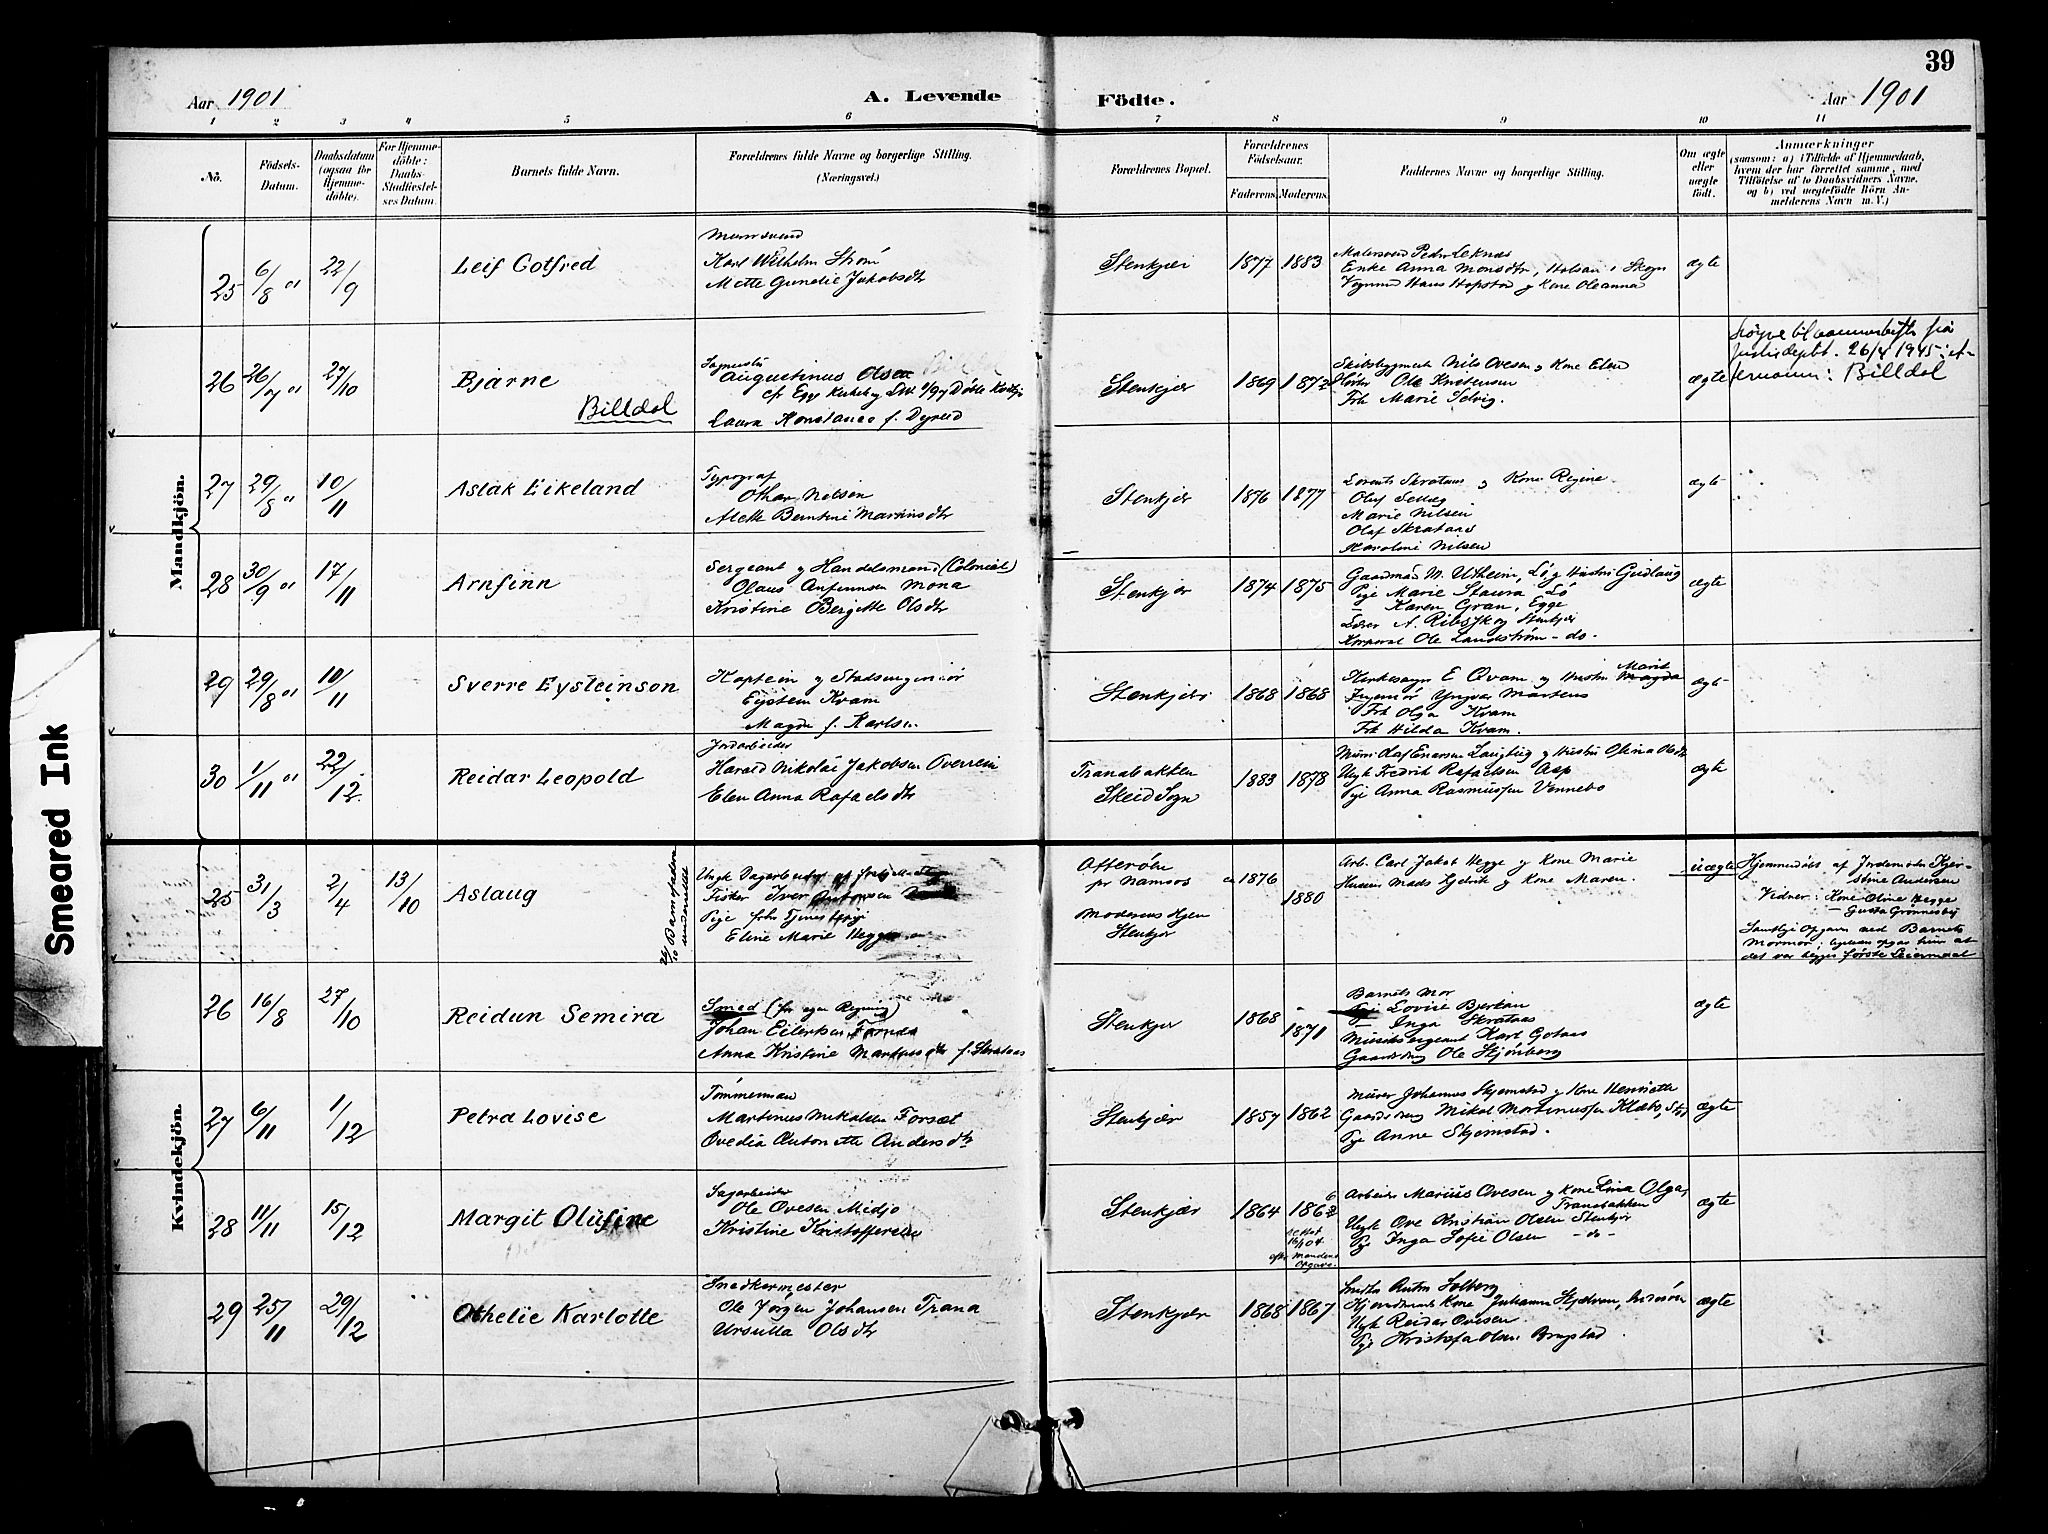 39
Aar 1901
A. Levende
Födte.
Aar 1901
1 2 3 4 5 6 7 8 9 10 11
No.
Födsels-Datum.
Daabsdatum (ogsaa for Hjemme-döbte).
For Hjemme-döbte: Daabs-Stadfæstel-ses Datum.
Barnets fulde Navn.
Forældrenes fulde Navne og borgerlige Stilling.
(Næringsvei.)
Forældrenes Bopæl.
Forældrenes Födselsaar.
Faderens.
Moderens.
Faddernes Navne og borgerlige Stilling.
Om ægte eller uægte födt.
Anmærkninger
(saasom: a) i Tilfælde af Hjemmedaab, hvem der har forrettet samme, med Tilföielse af to Daabsvidners Navne, og b) ved uægtefödte Börn An-melderens Navn m. V.)
Mandkjön.
25 6/8 " 22/9 Leif Gotfred
Karl Wilhelm Strøm
Mette Gundie Jakobsdtr
Stenkjær 1877 1883
Malersvend Peder Leknæs
Enke Anna Monsdtr, Holsan i Skogn
Vognmd Hans Hopstad og Kone Oleanna
ægte
26 26/7 " 27/10 Bjarne
Billdal
Augustinus Olsen
Laura Konstance f. Dyreld
Stenkjær 1869 1872
Skibsbygmestr Nils Ovesen og Kone Elen
Ole Knutsensen
Frk Marie Selvig.
ægte
Justisdeptt. 26/4 1945: et-
ternavn: Billdal
27 29/8 " 10/11 Aslak Eikeland
Typograf
Othar Nilsen
Alette Berntine Martinsdtr
Stenkjær 1876 1877
Lorents Skrataas og Kone Regine
Olaf Selleg
Marie Nilsen
Olaf Skrataas
Karoline Nilsen
ægte
28 30/9 " 17/11 Arnfinn
Sergeant og Handelsmand (Colonial)
Olaus Anfinnsen Mona
Kristine Bergitte Olsdtr
Stenkjær 1874 1875
Gaardmd M. Utheim, Lø, og Hustru Gudlaug
Pige Marie Staura Lø
— Karen Gran, Egge
Lærer A. Ribsskog Stenkjær
Korporal Ole Landstrøm - do.
ægte
29 29/8 " 10/11 Sverre Eysteinson
Kaptein og Stadsingeniør
Eystein Kvam
Magda f. Karlsen
Stenkjær 1868 1868
Kirkesangr E Qvam og Hustru Marit Magda
Ingeniør Yngvar Martens
Frk Olga Kvam
Frk Hilda Kvam.
ægte
30 1/11 " 22/12 Reidar Leopold
Jordarbeider
Harald Nikolai Jakobsen Overrein
Elen Anna Rafaelsdtr
Tranabakken
Skeid Sogn
1883 1878
Murer Olaf Enersen Langlug og Hustru Olina Olsdtr
Ungk Fredrik Rafaelsen Asp
Pige Anna Rasmussen Vennebo
ægte
Kvindekjön.
25 31/3 2/4 13/10 Aslaug
26/10 Barnefadern underrettet
Fisker Iver Antonsen
Pige
Eline Marie Hegge
Otterøen
pr Namsos
Moderens Hjem
Stenkjær
1876 1880
Arb. Carl Jakob Hegge og Kone Marie
Husmd Mads Hjelvik og Kone Maren.
uægte
Hjemmedøbt af Jordemoder Kjer-
stine Andersen
Vidner: Kone Oline Hegge
— Gusta Grønnesby
Samtlige Opgaver ved Barnets
Mormor; ligesaa opgav hun at
det var begges første Leiermaal
26 16/8 27/10 Reidun Semira
Smed (for egen Regning)
Johan Eilertsen Fornes
Anna Kristine Martinusdtr f. Skrataas
Stenkjær 1868 1871
Barnets Mor
Pige Lovise Bjerkan
— Inga Skrataas
Musiksergeant Karl Gotaas
Gaardsdrng Ole Skjønberg
ægte
27 6/11 1/12 Petra Lovise
Tømmermand
Martinus Mikalsen Forsæt
Ovedia Antonette Andersdtr
Stenkjær 1857 1862
Murer Johannes Skjemstad og Kone Henriette
Gaardsdrng Mikal Martinussen Klæbo, Stod
Pige Anne Skjemstad.
ægte
28 11/11 15/12 Margit Olufine
Sagarbeider
Ole Ovesen Midjo
Kristine Kristoffersen
Stenkjær 1864 1862 6
rettet 16/1 04 efter Mandens Opgave.
Arbeider Marius Ovesen og Kone Lina Olga,
Tranabakken
Ungk Ove Kristian Olsen Stenkjær
Pige Inga Sofie Olsen - do -
ægte
29 25/11 29/12 Othelie Karlotte
Snedkermester
Ole Jørgen Johansen Trana
Ursulla Olsdtr
Stenkjær 1868 1867
Anton Solberg
Kone Johanna Skjelven
Ungk Reidar Ovesen
Pige Kristofa Olsen Brustad.
ægte
Smeared Ink